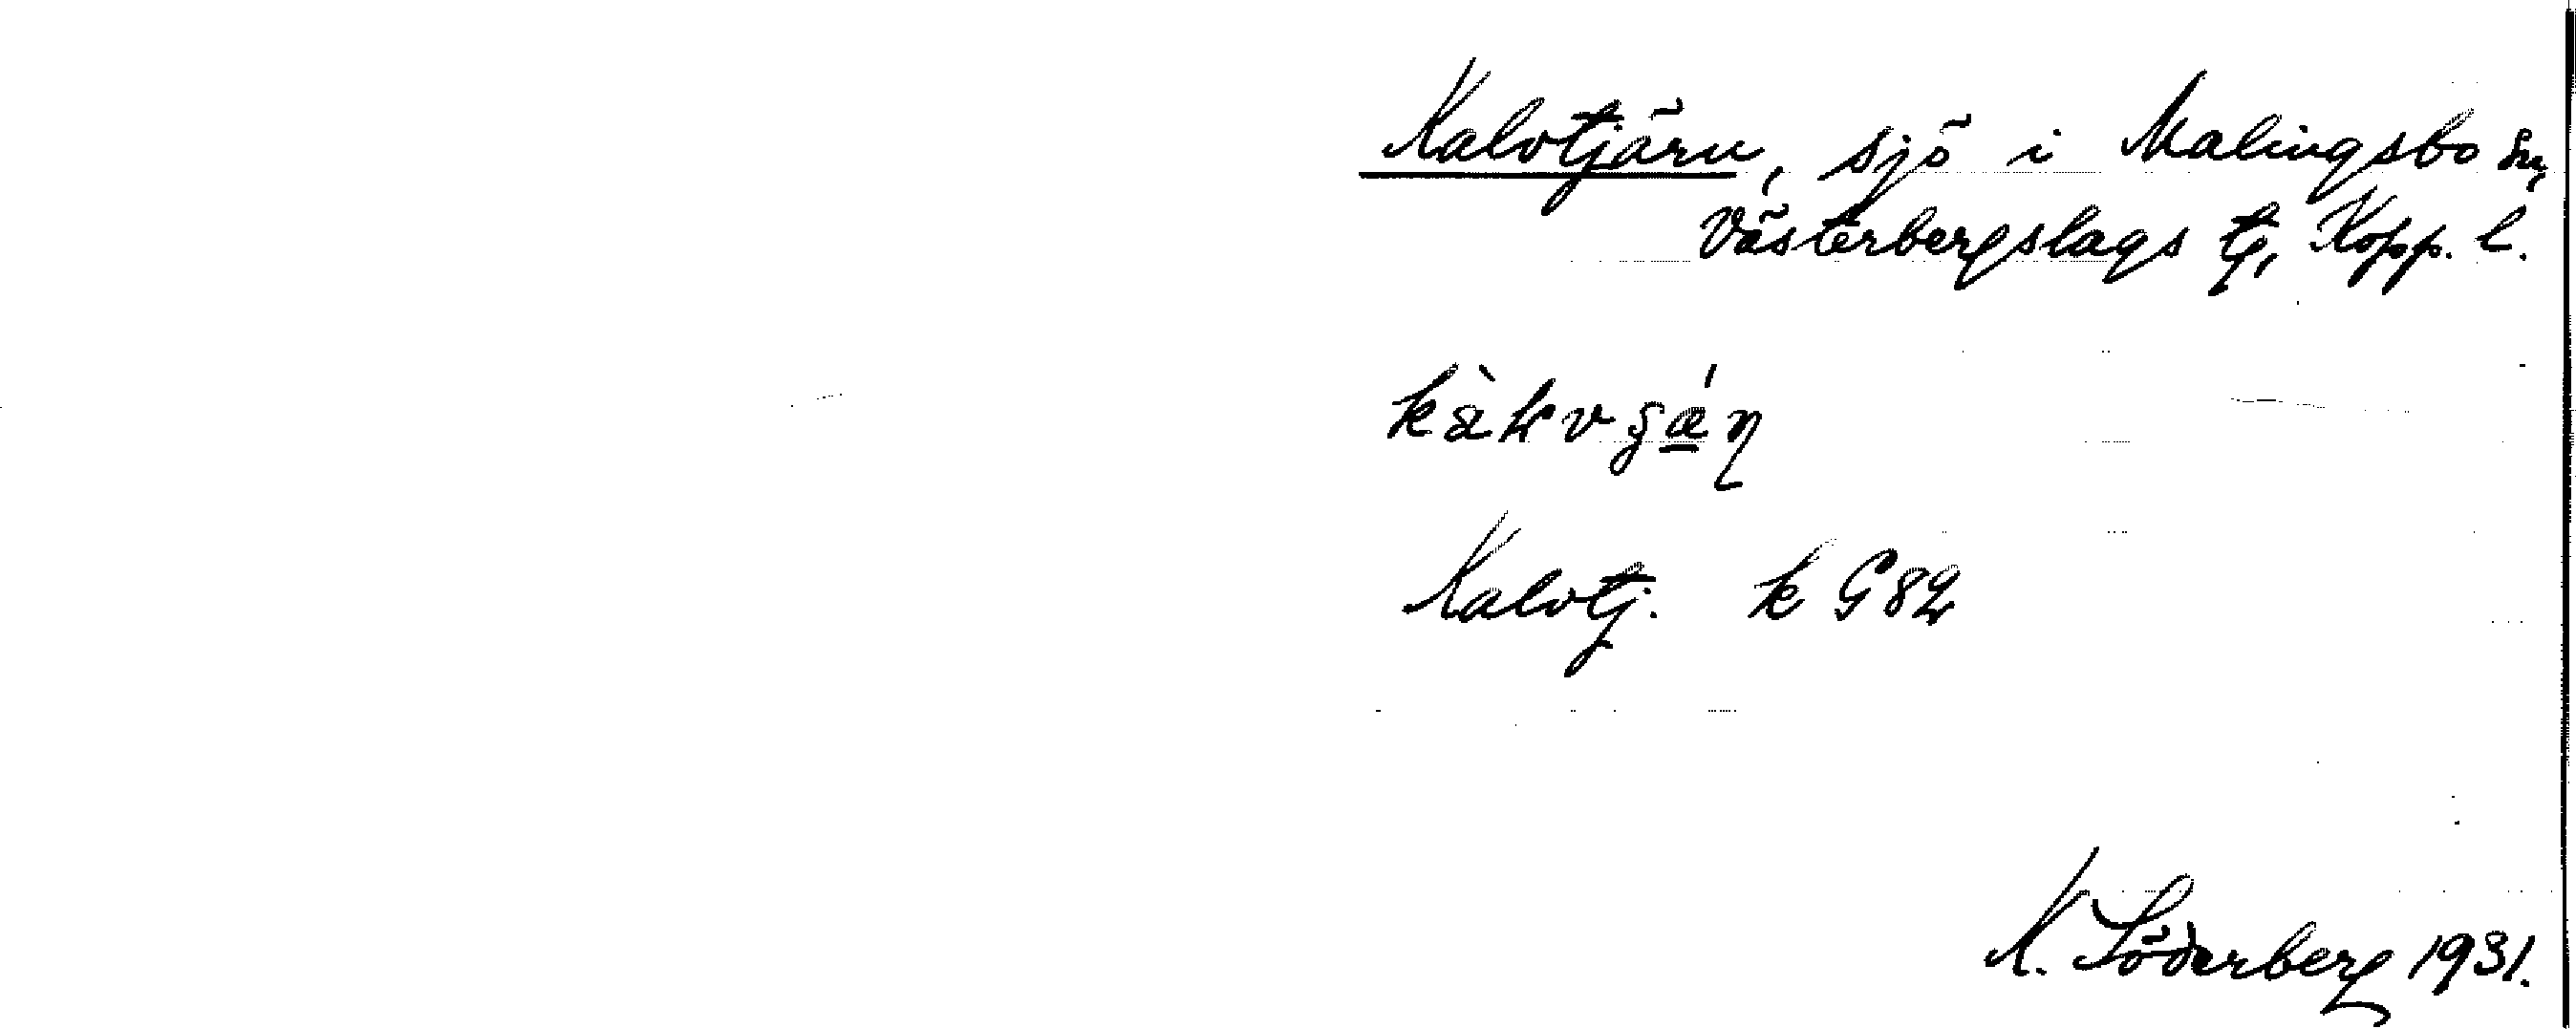 Kalvtjärn, sjö i Malingsbo sn,
Västerbergslags tg, Kopp. l.
Kalvtj. k G 82
K. Söderberg 1931.